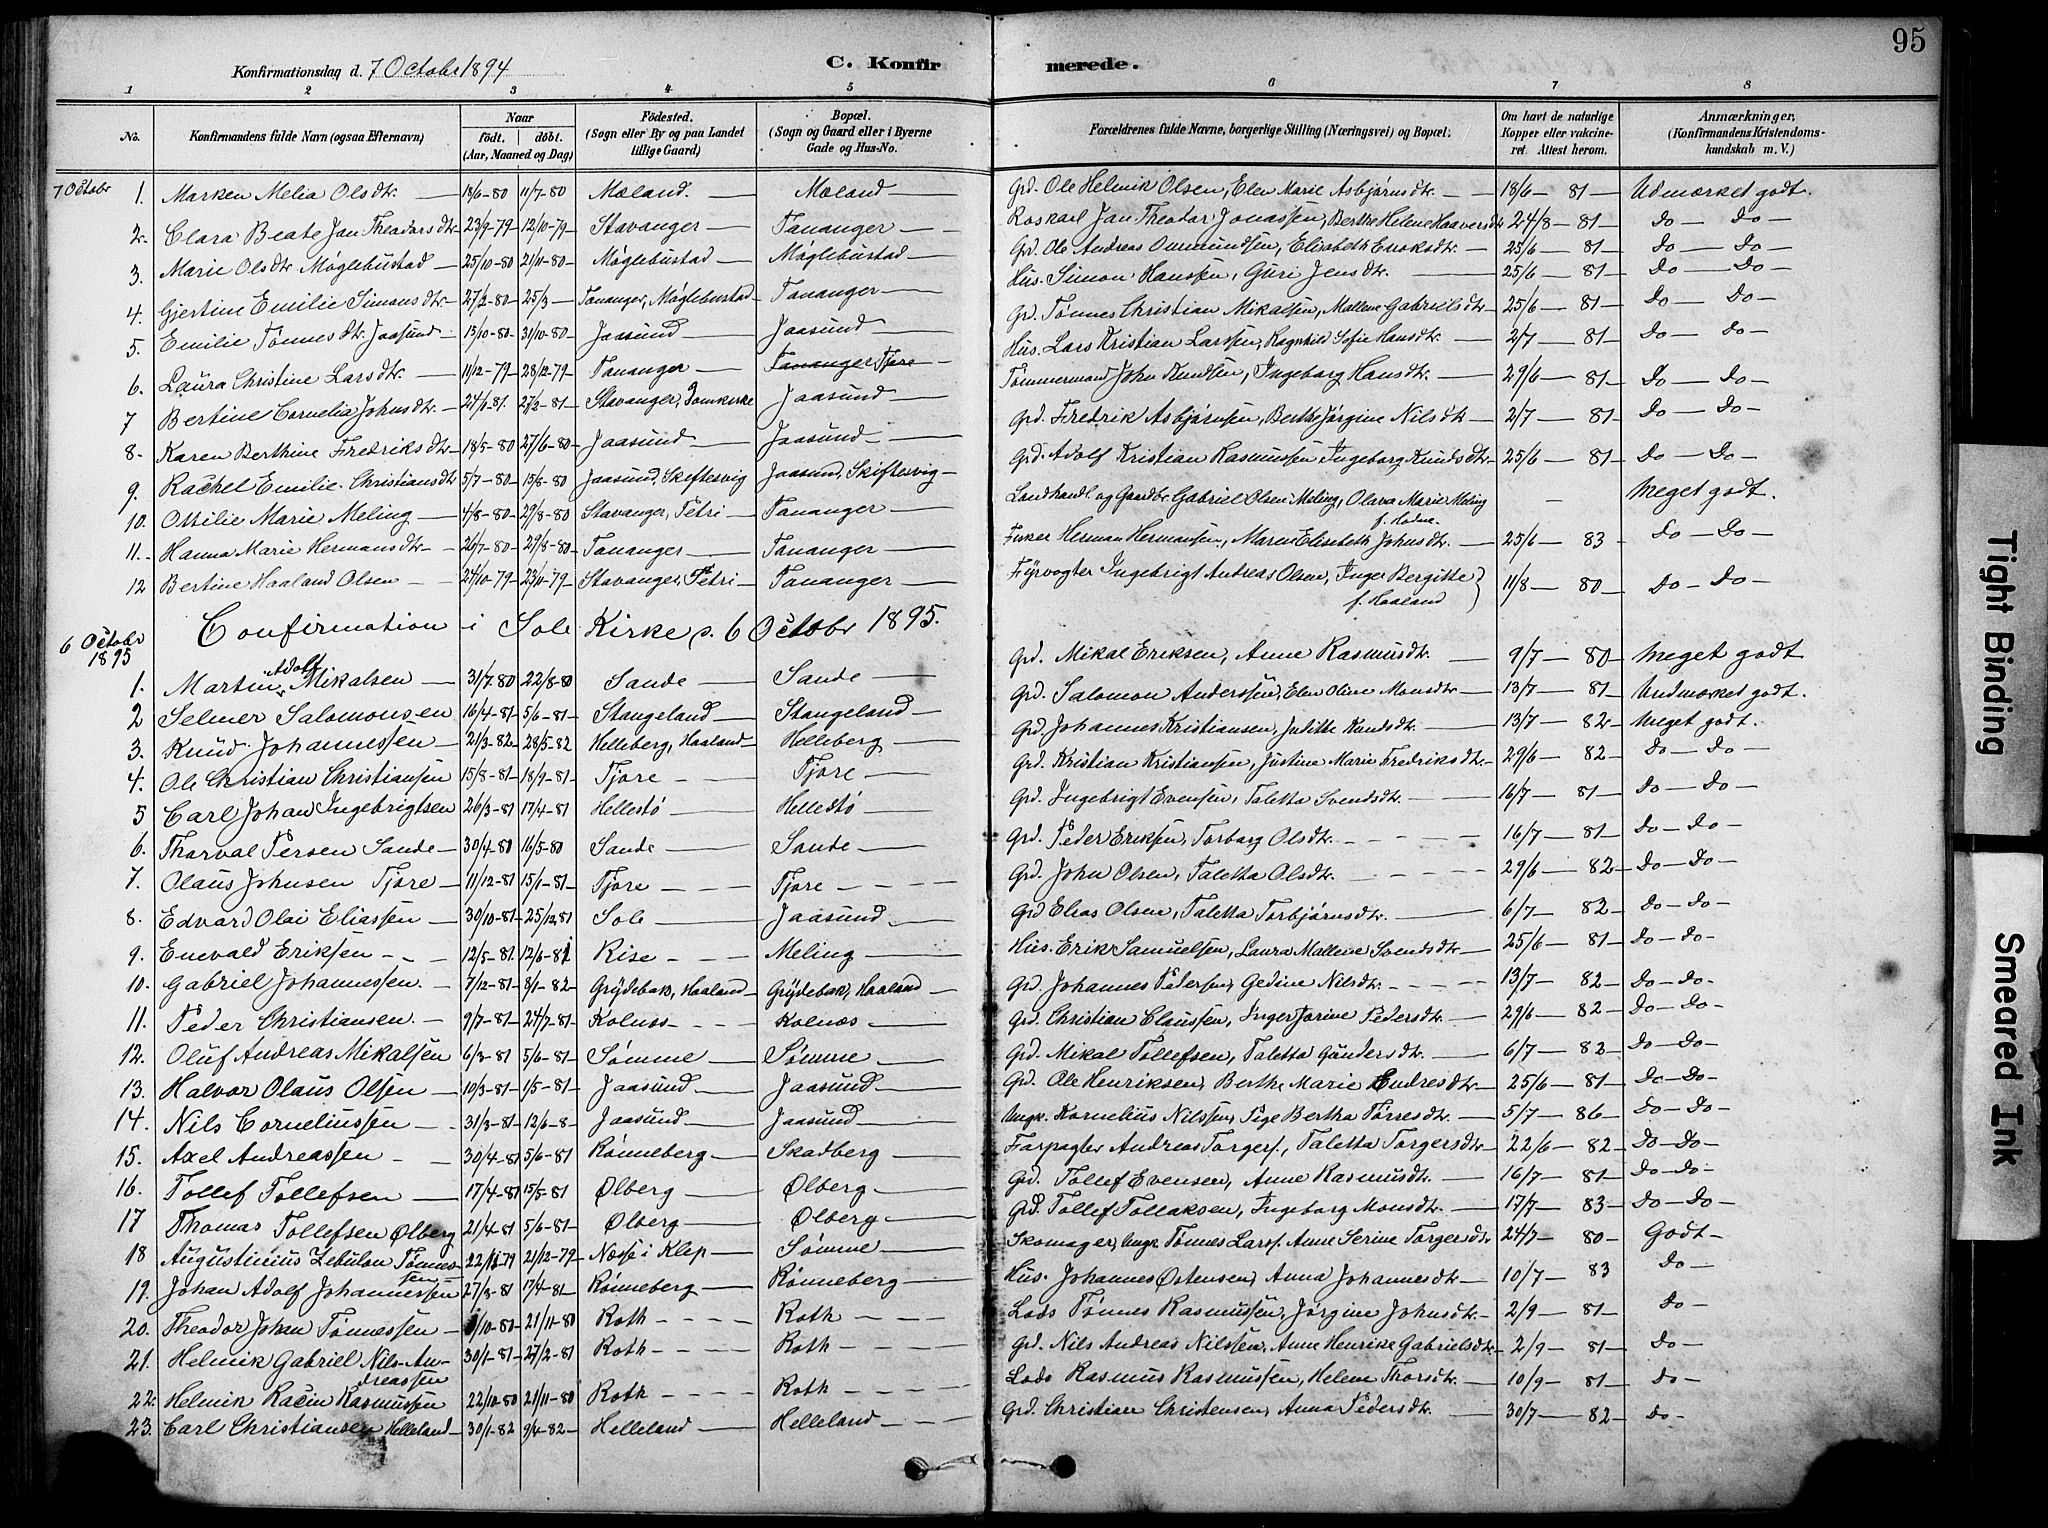 95
Konfirmationsdag d. 7 Octobr 1894 C. Konfirmerede.
1 2 3 4 5 6 7 8
No. Konfirmandens fulde Navn (ogsaa Efternavn) Naar født. døbt. (Aar, Maaned og Dag) Födested. (Sogn eller By og paa Landet tillige Gaard) Bopæl. (Sogn og Gaard eller i Byerne Gade og Hus-No. Forældrenes fulde Navne, borgerlige Stilling (Næringsvei) og Bopæl. Om havt de naturlige Kopper eller vakcineret. Attest herom. Anmærkninger, (Konfirmandens Kristendomskundskab m. V.)
7 Octobr 1. Marken Melia Olsdtr. 13/6-80 11/7-80 Mæland Mæland Grd. Ole Helmik Olsen, Elen Marie Asbjørnsdtr. 18/6 - 81 Udmærket godt.
2. Clara Beate Jan Theodorsdtr. 23/9-79 12/10-79 Stavanger Tananger Roskarl Jan Theodor Jonassen, Berthe Helene Haaversdtr 24/8 - 81 Do - Do -
3. Marie Olsdtr. Møglebustad 25/10-80 21/11-80 Møglebustad Møglebustad Grd. Ole Andreas Ommundsen, Elisabeth Enoksdtr. 25/6 81 Do - Do
4. Gjertine Emilie Simonsdtr. 27/2-80 25/3 Tananger, Møglebustad Tananger Hus. Simon Hansen, Guri Jensdtr. 25/6 81 Do - Do
5. Emilie Tønnesdtr. Jaasund 13/10-80 31/10-80 Jaasund Jaasund Grd. Tønnes Christian Mikalsen, Mallene Gabrielsdtr 25/6 81 Do - Do -
6. Laura Christine Larsdtr. 11/12-79 28/12-79 Tananger Tananger Tjore Hus. Lars Kristian Larssen, Ragnhild Sofie Hansdtr. 2/7 81 Do - Do
7 Bertine Cornelia Johnsdtr. 24/1-81. 27/2-81 Stavanger, Domkirke Jaasund Tømmermand John Knudsen, Ingeborg Hansdtr. 29/6 - 81 Do - Do -
8. Karen Berthine Fredriksdtr 18/5-80 27/6-80 Jaasund Jaasund Grd. Fredrik Asbjørnsen, Berthe Jørgine Nilsdtr 2/7 - 81 Do - Do -
9. Rachel Emilie Christiansdtr 5/7-80 15/8-80 Jaasund, Skiftesvig Jaasund, Skiftesvig Grd. Adolf Kristian Rasmussen Ingeborg Knudsdtr. 25/6 - 81 Do - Do -
10. Ottilie Marie Meling 4/8-80 29/8-80 Stavanger, Petri Tananger Landhandl. og Gaardbr. Gabriel Olsen Meling, Olava Marie Meling f. Hodne - Meget godt.
11. Hanna Marie Hermansdtr 26/7-80 29/8-80 Tananger Tananger Fisker Herman Hermansen, Maren Elisabeth Johnsdtr. 25/6 - 83 Do - Do -
12 Bertine Haaland Olsen 24/10-79 23/11-79 Stavanger, Petri Tananger Fyrvogter Ingebrigt Andreas Olsen, Inger Bergitte f. Haaland 11/8 - 80 Do - Do -
6 Octobr 1895 Confirmation i Sole Kirke d. 6 Octobr 1895.
1. Martin Adolf Mikalsen 31/7-80 22/8-80 Sande Sande Grd. Mikal Eriksen, Anne Rasmusdtr. 9/7 - 80 Meget godt
2 Selmer Salomonsen 16/4-81 5/6-81 Stangeland Stangeland Grd. Salomon Anderssen, Elen Oline Monsdtr 13/7 - 81 Undmærket godt.
3. Knud Johannessen 21/3-82 28/5-82 Helleberg, Haaland Helleberg Grd. Johannes Kristiansen, Judithe Knudsdtr. 13/7 - 82 Meget godt.
4. Ole Christian Christiansen 15/8-81 18/9-81 Tjore Tjore Grd. Kristian Kristiansen, Justine Marie Fredriksdtr 29/6 - 82 Do - Do -
5 Carl Johan Ingebrigtsen 26/3-81 17/4-81 Hellestø Hellestø Grd. Ingebrigt Evensen, Taletta Svendsdtr. 16/7 - 81 Do - Do -
6. Thorval Persen Sande 30/4-80 16/5-80 Sande Sande Grd. Peder Eriksen, Torborg Olsdtr. 16/7 - 81 Do - Do -
7. Olaus Johnsen Tjore 11/12-81 15/1-81 Tjore Tjore Grd. John Olsen, Taletta Olsdtr. 29/6 - 82 Do - Do -
8. Edvard Olai Eliassen 30/10-81 25/12 81 Sole Jaasund Grd Elias Olsen, Taletta Torbjørnsdtr. 6/7 - 82 Do - Do -
9. Enevald Eriksen 12/5-81. 12/6-81 Rise Meling Hus. Erik Samuelsen, Laura Mallene Svendsdtr 25/6 - 81 Do - Do -
10. Gabriel Johannessen. 7/12-81 8/1-82 Grydebak, Haaland Grydebak, Haaland Grd. Johannes Pedersen, Gedine Nilsdtr. 13/7 - 82 Do - Do -
11. Peder Christiansen 9/7-81 24/7-81 Kolnæs Kolnæs Grd. Christian Claussen, Inger Jorine Pedersdtr 29/6 - 82 Do - Do -
12. Oluf Andreas Mikalsen 6/3-81 5/6-81 Sømme Sømme Grd. Mikal Tollefsen, Taletta Gundersdtr. 6/7 - 82 Do - Do -
13. Halvor Olaus Olsen 10/3-81 1/5-81 Jaasund Jaasund Grd. Ole Henriksen, Berthe Marie Endresdtr 25/6 - 81 Do - Do -
14. Nils Corneliussen 31/3-81 12/6-8 Jaasund Jaasund Ungk. Kornelius Nilssen, Pige Bertha Tørresdtr. 5/7 - 86 Do - Do -
15. Axel Andreassen 30/4-81 5/6-81 Rønneberg Skadberg Forpagter Andreas Torgers., Taletta Torgersdtr. 22/6 - 82 Do - Do -
16. Tollef Tollefsen 17/4-81 15/5-81 Ølberg Ølberg Grd. Tollef Evensen, Anne Rasmusdtr. 16/7 - 81 Do - Do -
17 Thomas Tollefsen Ølberg 21/4-81 5/6-81 Ølberg Ølberg Grd. Tollef Tollaksen, Ingeborg Monsdtr. 17/7 - 83 Do - Do -
18 Augustinius Zebulon Tønnessen 22/11-79 21/12-79 Næsse i Klep Sømme Skomager, Ungk. Tønnes Larss. Anne Serine Torgersdtr 24/7 - 80 Godt -
19. Johan Adolf Johannessen 27/3-81 17/4-81 Rønneberg Rønneberg Hus. Johannes Østensen, Anna Johannesdtr 10/7 - 83 Do -
20. Theodor Johan Tønnessen /10-80 21/11-80 Roth Roth Lods Tønnes Rasmussen, Jørgine Johnsdtr 2/9 - 81 Do -
21. Helmik Gabriel Nils-Andreassen 30/1-81 27/2-81 Roth Roth Grd. Nils Andreas Nilssen, Anne Henrike Gabrielsdtr 2/9 - 81 Do -
22. Helmik Racin Rasmussen 22/10-80 21/11-80 Roth Roth Lods Rasmus Rasmussen, Helene Thorsdtr. 10/9 - 81 Do -
23. Carl Christiansen Helleland 30/1-82 9/4-82 Helleland Helleland Grd. Christian Christensen, Anna Pedersdtr. 30/7 - 82 Do -
Tight Binding
Smeared Ink